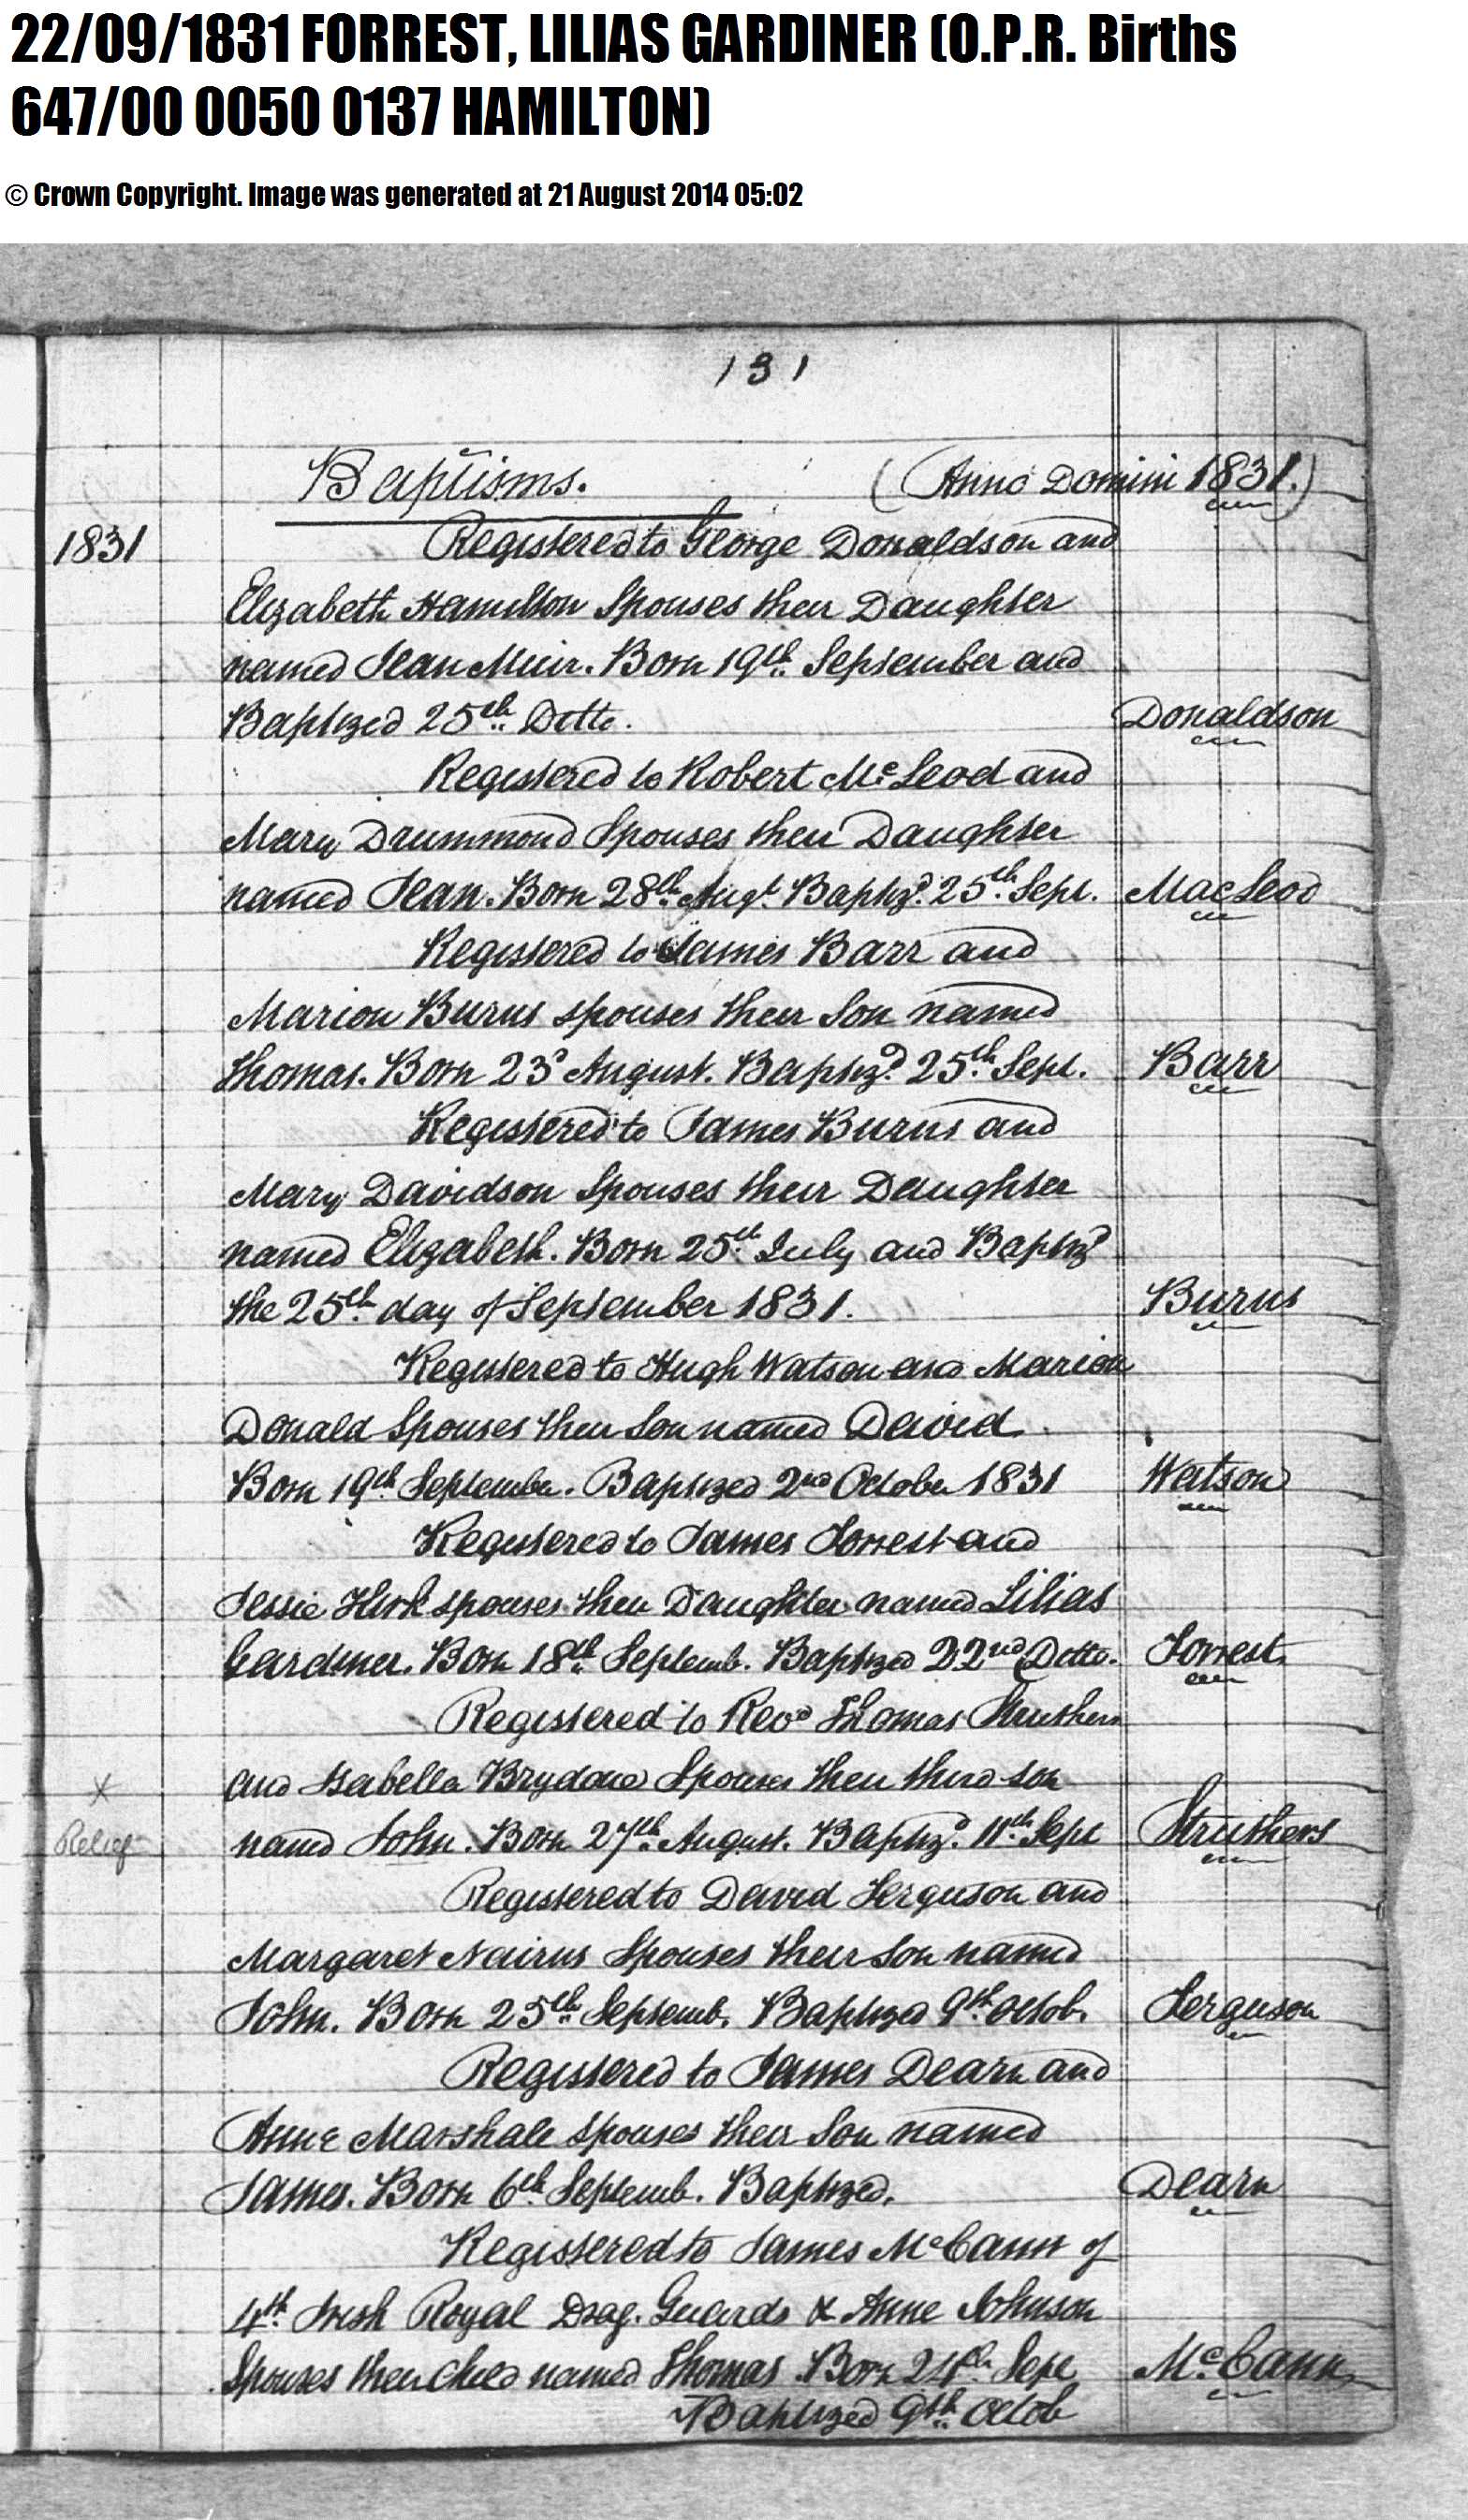 22/09/1831 FORREST, LILIAS GARDINER (O.P.R. Births
647/00 0050 0137 HAMILTON)
© Crown Copyright. Image was generated at 21 August 2014 05:02
131
Baptisms. (Anno Domini 1831.)
1831 Registered to George Donaldson and
Elizabeth Hamilton Spouses their Daughter
named Jean Muir. Born 19th September and
Baptized 25th Ditto. Donaldson
Registered to Robert McLeod and
Mary Drummond Spouses their Daughter
named Jean. Born 28th Augt. Baptizd. 25th Sept. MacLeod
Registered to James Barr and
Marion Burns spouses their Son named
Thomas. Born 23d August. Baptizd. 25th Sept. Barr
Registered to James Burns and
Mary Davidson Spouses their Daughter
named Elizabeth. Born 25th July and Baptizd
the 25th day of September 1831. Burns
Registered to Hugh Watson and Marion
Donald Spouses their Son named David.
Born 19th September. Baptized 2nd October 1831 Watson
Registered to James Forrest and
Jessie Kirk spouses their Daughter named Lilias
Gardiner. Born 18th Septemb. Baptized 22nd Ditto. Forrest
Registered to Revd Thomas Struthers
and Isabella Brydone Spouses their third son
X
Relief named John. Born 27th August. Baptizd. 11th Sept Struthers
Registered to David Ferguson and
Margaret Nairns Spouses their Son named
John. Born 25th Septemb. Baptized 9th Octob. Ferguson
Registered to James Dearn and
Anne Marshale spouses their Son named
James. Born 6th Septemb. Baptized. Dearn
Registered to James McCann of
4th Irish Royal Drag. Guards & Anne Johnson
Spouses their Child named Thomas. Born 24th Sept McCann
Baptized 9th Octob